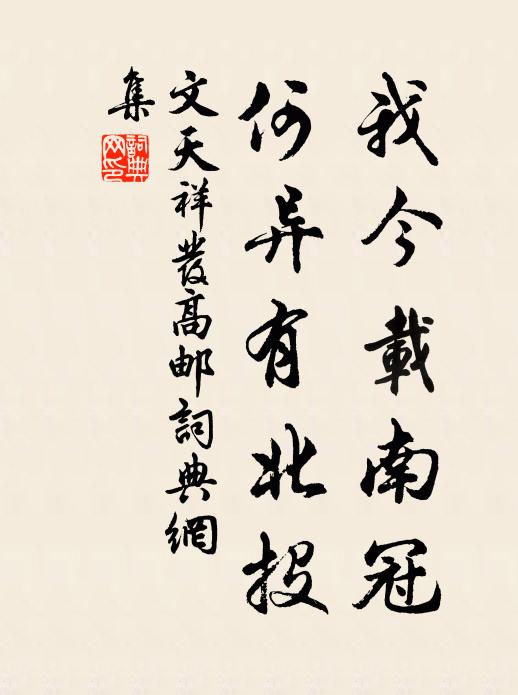 我今載南冠
何异有北投
文天祥發高邮詞典網
集
詞典網印